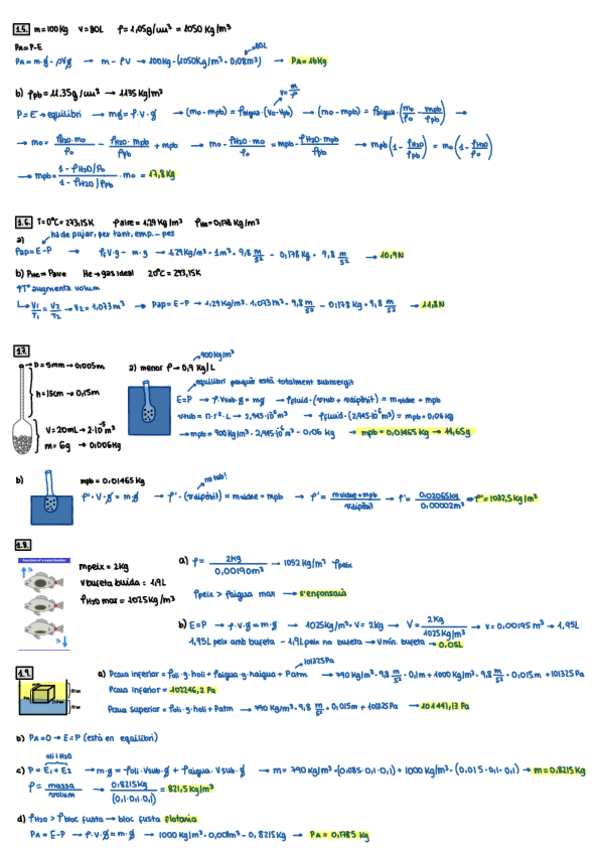 1.5. m=100Kg V=80L ρ=1,05g/cm³ = 1050 Kg/m³
PA=P-E
80L
PA=m·g-ρVg → m-ρV → 100Kg-(1050Kg/m³·0,08m³) → PA=16Kg
b) ρpb=11.35g/cm³ → 1135Kg/m³
V=m/ρ
P=E → equilibri → mg=ρ·V·g → (mo-mpb)=ρaigua·(Vo-Vpb) → (mo-mpb)=ρaigua·(mo/ρo - mpb/ρpb) →
→ mo= ρH2O·mo/ρo - ρH2O·mpb/ρpb + mpb → mo- ρH2O·mo/ρo = mpb- ρH2O·mpb/ρpb → mpb(1- ρH2O/ρpb) = mo(1- ρH2O/ρo)
→ mpb= 1-ρH2O/ρo / 1-ρH2O/ρpb ·mo = 17,8Kg
1.6. T=0ºC=273,15K ρaire=1,29Kg/m³ ρHe=0,178Kg/m³
a) ha de pujar, per tant, emp.-pes
Pap=E-P → ρf·V·g-m·g → 1,29Kg/m³·1m³·9,8 m/s² - 0,178Kg·9,8 m/s² → 10,9N
b) PHe=Paire He→gas ideal 20ºC=293,15K
↑Tª augmenta volum
V1/T1 = V2/T2 → V2=1,073m³ → Pap=E-P → 1,29Kg/m³·1,073m³·9,8 m/s² - 0,178Kg·9,8 m/s² → 11,8N
1.7.
D=5mm→0,005m
h=15cm→0,15m
V=20mL→2·10⁻⁵m³
m=6g→0,006Kg
900Kg/m³
a) menor ρ→0,9Kg/L
equilibri perquè està totalment submergit
E=P → ρ·Vsub·g=mg → ρfluid·(Vtub+Vdipòsit)=mvidre+mpb
Vtub=π·r²·L→2,945·10⁻⁶m³ → ρfluid·(2,945·10⁻⁶m³)=mpb+0,06Kg
→mpb=900Kg/m³·2,945·10⁻⁶m³-0,06Kg → mpb=0,01465Kg→14,65g
b) mpb=0,01465Kg
no tub!
ρ'·V·g=m·g → ρ'·(Vdipòsit)=mvidre+mpb → ρ'= mvidre+mpb / Vdipòsit → ρ'= 0,02065Kg / 0,00002m³ → ρ'=1032,5Kg/m³
1.8.
mpeix=2Kg
Vbufeta buida=1,9L
ρH2O mar=1025Kg/m³
a) ρ= 2Kg / 0,00190m³ → 1052Kg/m³ ρpeix
ρpeix > ρaigua mar → s'enfonsaià
b) E=P → ρ·V·g=m·g → 1025Kg/m³·V=2Kg → V= 2Kg / 1025Kg/m³ → V=0,00195m³→1,95L
1,95L peix amb bufeta - 1,9L peix no bufeta → Vmín. bufeta → 0,05L
1.9.
101325Pa
a) Pcara inferior=ρoli·g·holi+ρaigua·g·haigua+Patm → 790Kg/m³·9,8 m/s²·0,1m+1000Kg/m³·9,8 m/s²·0,015m+101325Pa
Pcara inferior=102246,2Pa
Pcara superior=ρoli·g·holi+Patm → 790Kg/m³·9,8 m/s²·0,015m+101325Pa → 101441,13Pa
b) PA=0→E=P (està en equilibri)
oli i H2O
c) P=E1+E2 → m·g=ρoli·Vsub·g+ρaigua·Vsub·g → m=790Kg/m³·(0,085·0,1·0,1)+1000Kg/m³·(0,015·0,1·0,1)→ m=0,8215Kg
ρ= massa / volum → 0,8215Kg / (0,1·0,1·0,1) = 821,5Kg/m³
d) ρH2O > ρbloc fusta→bloc fusta flotaria
PA=E-P → ρ·V·g=m·g → 1000Kg/m³·0,001m³-0,8215Kg → PA=0,1785Kg